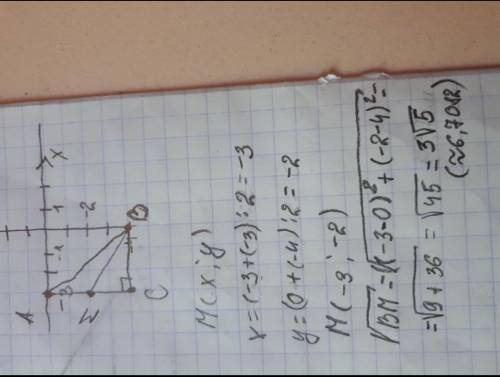 A
-3
-1
1
X
M
-2
C
B
M(x;y)
x=(-3+(-3)):2=-3
y=(0+(-4)):2=-2
M(-3;-2)
√BM=√((-3-0)²+(-2-4)²=
=√9+36=√45=3√5
(≈6,7082)